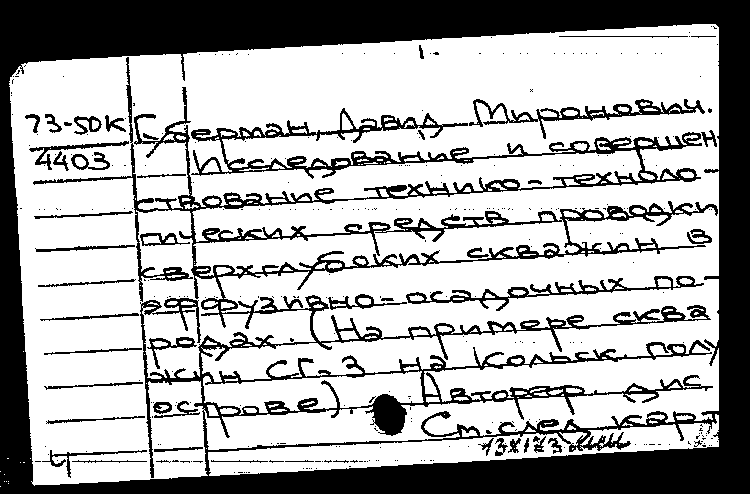 1.
73-50К Губерман, Давид Миронович.
4403 Исследование и совершен-
ствование технико-техноло-
гических средств проводки
сверхглубоких скважин в
эффузивно-осадочных по-
родах. (На примере сква-
жин СГ-3 на Кольск. полу
острове). Автореф. дис.
См. след карт
ч